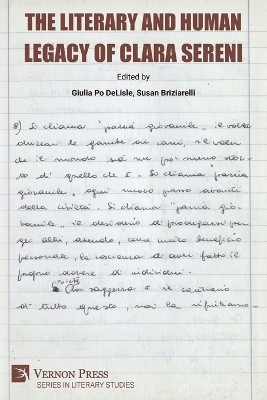 THE LITERARY AND HUMAN
LEGACY OF CLARA SERENI
Edited by
Giulia Po DeLisle, Susan Briziarelli
8) Si chiama "pazzia giovanile" il voler
che il mondo sia un po' meno
di quello che è. Si chiama "pazzia
giovanile", ogni nuovo passo avanti
della civiltà. Si chiama "pazzia gio-
vanile" il desiderio di prodigarsi per
gli altri, avendo, come unico beneficio
personale, la coscienza di aver fatto il
proprio dovere di individui.
saggezza è il contrario
di tutto questo, noi la rifiutiamo
VERNON PRESS
SERIES IN LITERARY STUDIES